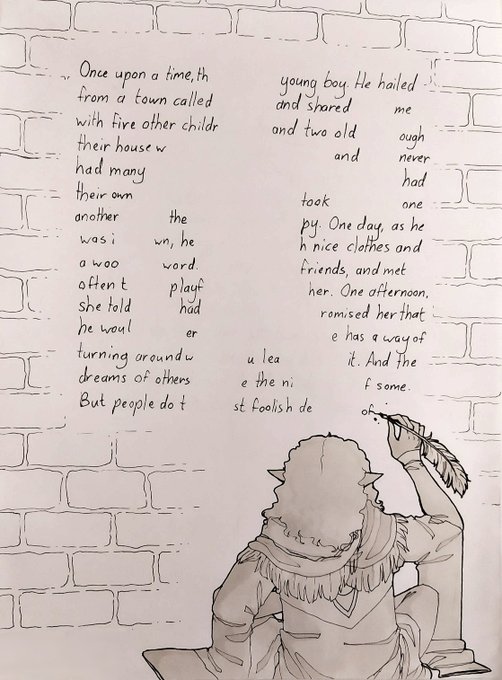 Once upon a time, th young boy. He hailed
from a town called and shared me
with five other childr and two old ough
their house w and never
had many had
their own took one
another the py. One day, as he
was i wn, he h nice clothes and
a woo word. friends, and met
often t playf her. One afternoon,
she told had romised her that
he woul er e has a way of
turning around w u lea it. And the
dreams of others e the ni f some.
But people do t st foolish de of